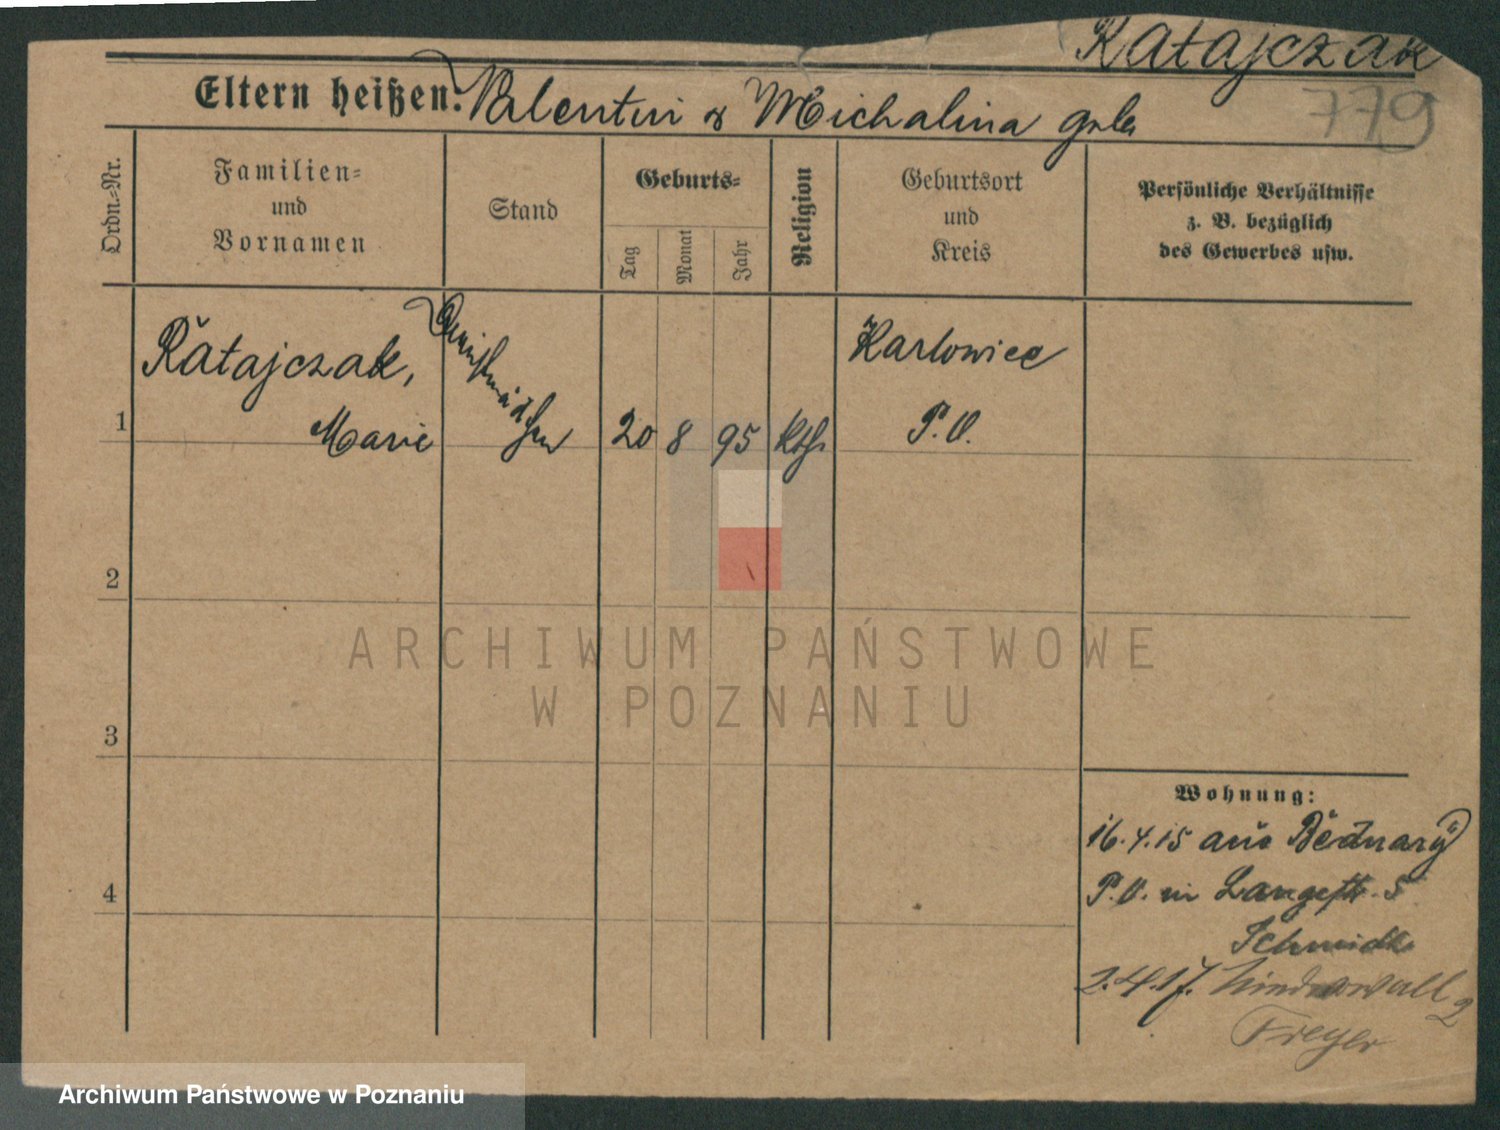 Ratajczak
779
Eltern heißen: Valentin & Michalina geb.
Ordn.-Nr.
Familien-
und
Vornamen
Stand
Geburts-
Tag
Monat
Jahr
Religion
Geburtsort
und
Kreis
Persönliche Verhältnisse
z. B. bezüglich
des Gewerbes usw.
1
Ratajczak,
Marie
Dienstmädchen
20
8
95
kth.
Karlowice
P.O.
2
3
4
ARCHIWUM PAŃSTWOWE
W POZNANIU
Wohnung:
16.4.15 aus Bednary
P.O. in Langestr. 5
Schmidt
2.4.17. Niederwall 2
Freyer
Archiwum Państwowe w Poznaniu